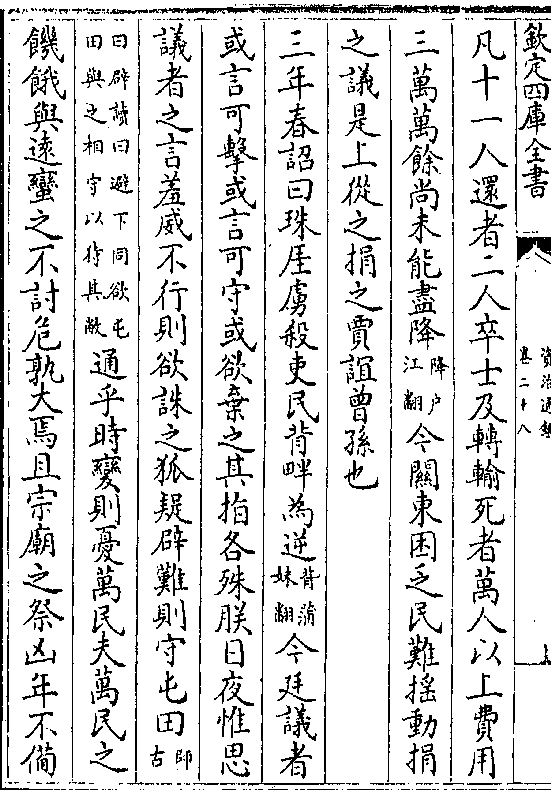 欽定四庫全書
資治通鑑
卷二十八
凡十一人還者二人卒士及轉輸死者萬人以上費用
三萬萬餘尚未能盡降降户江翻今關東困乏民難揺動捐
之議是上從之捐之賈誼曾孫也
三年春詔曰珠厓虜殺吏民背畔為逆背蒲妹翻今廷議者
或言可擊或言可守或欲棄之其指各殊朕日夜惟思
議者之言羞威不行則欲誅之狐疑辟難則守屯田師古
曰辟讀曰避下同欲屯田與之相守以待其敝通乎時變則憂萬民夫萬民之
饑餓與逺蠻之不討危孰大焉且宗廟之祭凶年不備